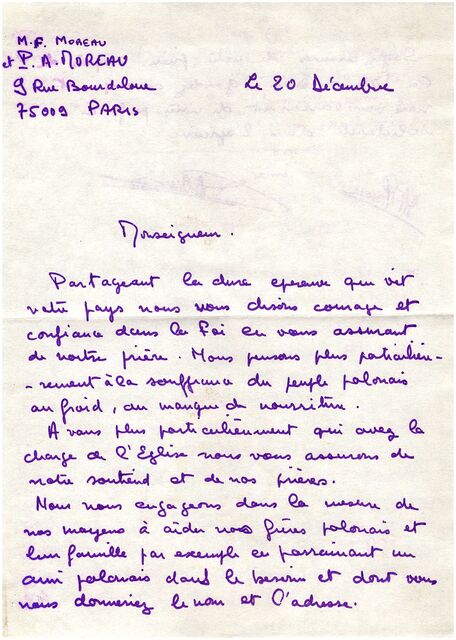 M.F. MOREAU
et P.A. MOREAU
9 Rue Bourdaloue
75009 PARIS
Le 20 Décembre
Monseigneur.
Partageant la dure epreuve que vit
votre pays nous vous disons courage et
confiance dans la Foi en vous assurant
de nortre prière. Nous pensons plus particuliè-
-rement à la souffrance du peuple polonais
au froid, au manque de nourriture.
A vous plus particulièrement qui avez la
charge de l'Eglise nous vous assurons de
notre soutient et de nos prières.
Nous nous engageons dans la mesure de
nos moyens à aider nos frères polonais et
leur famille par exemple en parrainant un
ami polonais dans le besoin et dont vous
nous donneriez le nom et l'adresse.